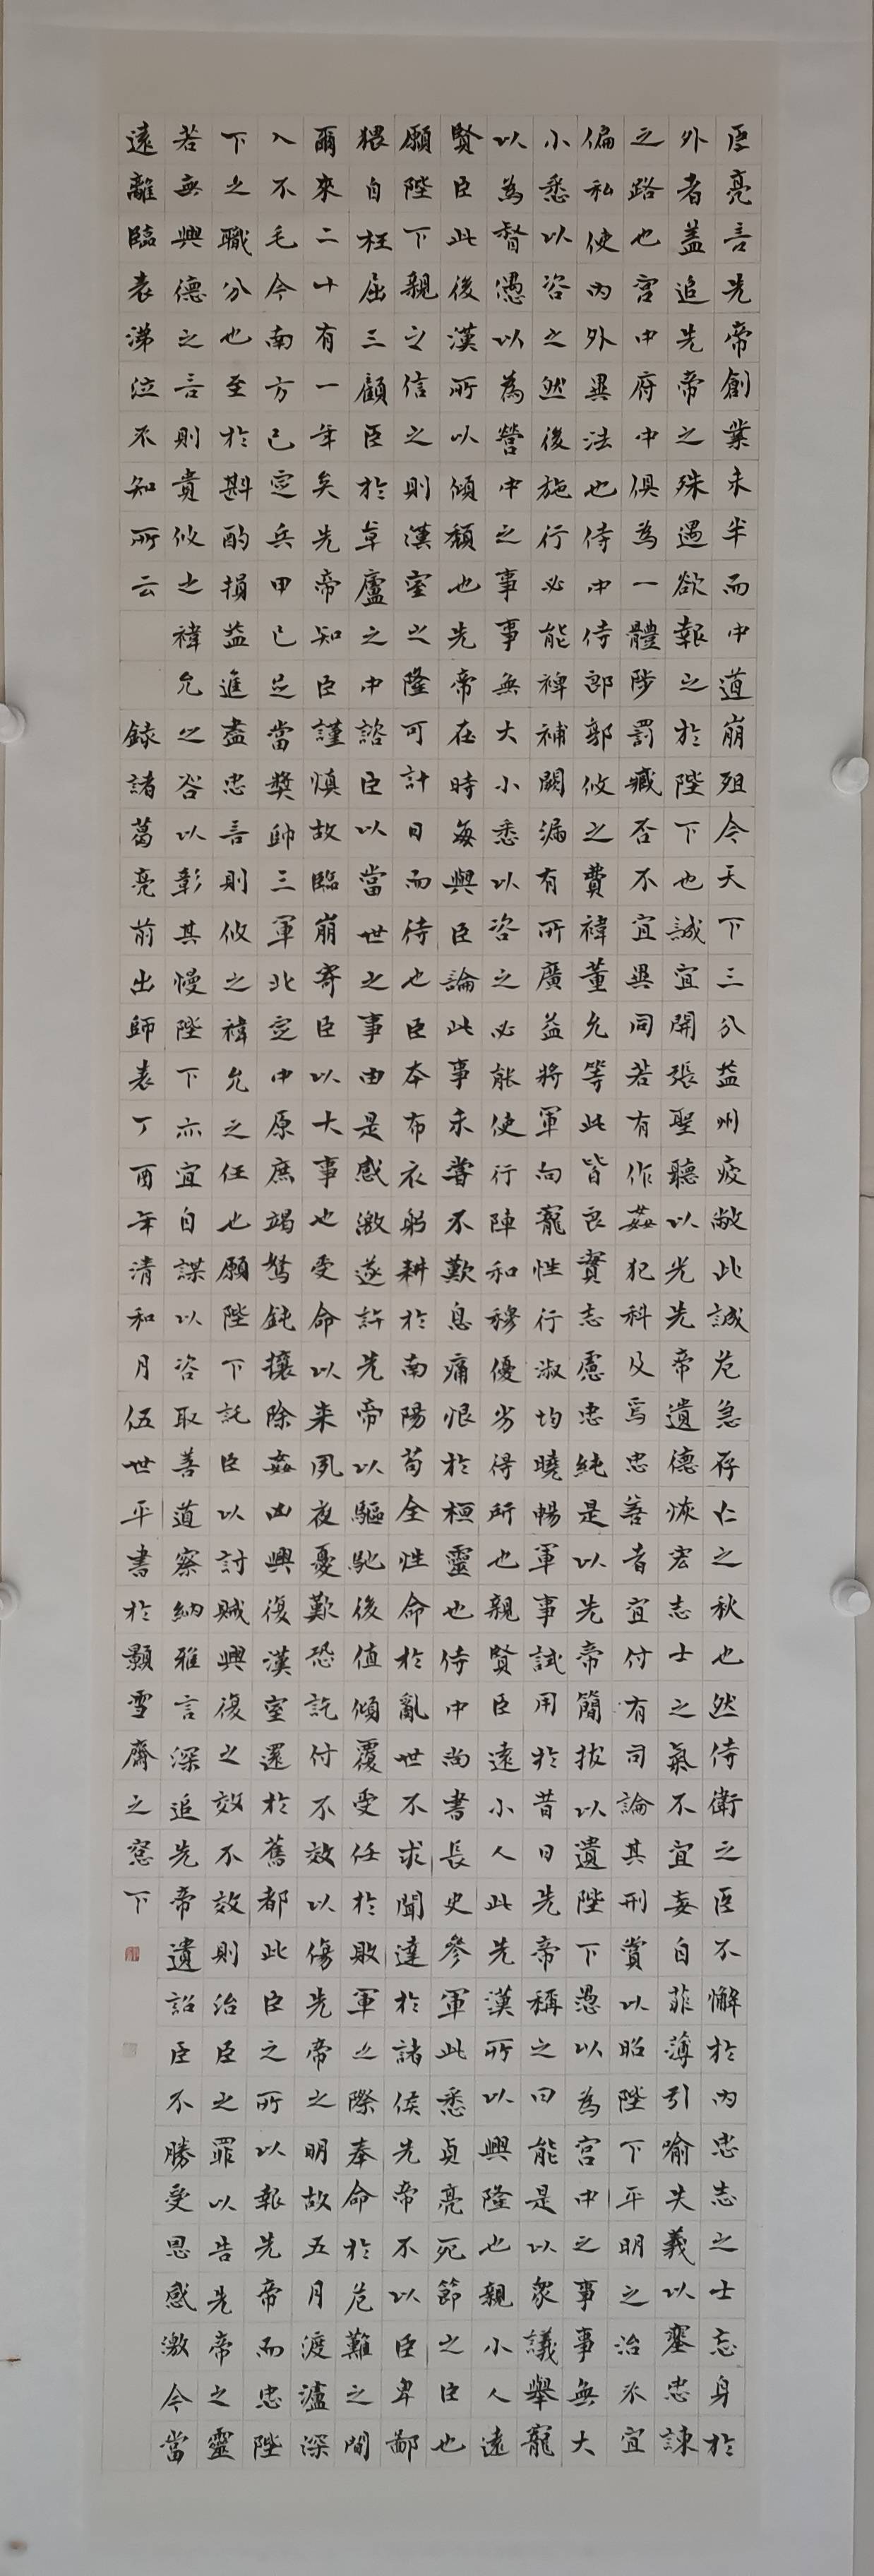 臣亮言先帝創業未半而中道崩殂今天下三分益州疲敝此誠危急存亡之秋也然侍衛之臣不懈於內忠志之士忘身於
外者蓋追先帝之殊遇欲報之於陛下也誠宜開張聖聽以光先帝遺德恢宏志士之氣不宜妄自菲薄引喻失義以塞忠諫
之路也宮中府中俱為一體陟罰臧否不宜異同若有作姦犯科及為忠善者宜付有司論其刑賞以昭陛下平明之治不宜
偏私使內外異法也侍中侍郎郭攸之費禕董允等此皆良實志慮忠純是以先帝簡拔以遺陛下愚以為宮中之事事無大
小悉以咨之然後施行必能裨補闕漏有所廣益將軍向寵性行淑均曉暢軍事試用於昔日先帝稱之曰能是以眾議舉寵
以為督愚以為營中之事事無大小悉以咨之必能使行陣和穆優劣得所也親賢臣遠小人此先漢所以興隆也親小人遠
賢臣此後漢所以傾頹也先帝在時每與臣論此事未嘗不歎息痛恨於桓靈也侍中尚書長史參軍此悉貞亮死節之臣也
願陛下親之信之則漢室之隆可計日而待也臣本布衣躬耕於南陽苟全性命於亂世不求聞達於諸侯先帝不以臣卑鄙
猥自枉屈三顧臣於草廬之中諮臣以當世之事由是感激遂許先帝以驅馳後值傾覆受任於敗軍之際奉命於危難之間
爾來二十有一年矣先帝知臣謹慎故臨崩寄臣以大事也受命以來夙夜憂歎恐託付不效以傷先帝之明故五月渡瀘深
入不毛今南方已定兵甲已足當獎帥三軍北定中原庶竭駑鈍攘除姦凶興復漢室還於舊都此臣之所以報先帝而忠陛
下之職分也至於斟酌損益進盡忠言則攸之禕允之任也願陛下託臣以討賊興復之效不效則治臣之罪以告先帝之靈
若無興德之言則責攸之禕允之咎以彰其慢陛下亦宜自謀以咨取善道察納雅言深追先帝遺詔臣不勝受恩感激今當
遠離臨表涕泣不知所云 錄諸葛亮前出師表丁酉年清和月伍世平書於顥雪齋之窓下